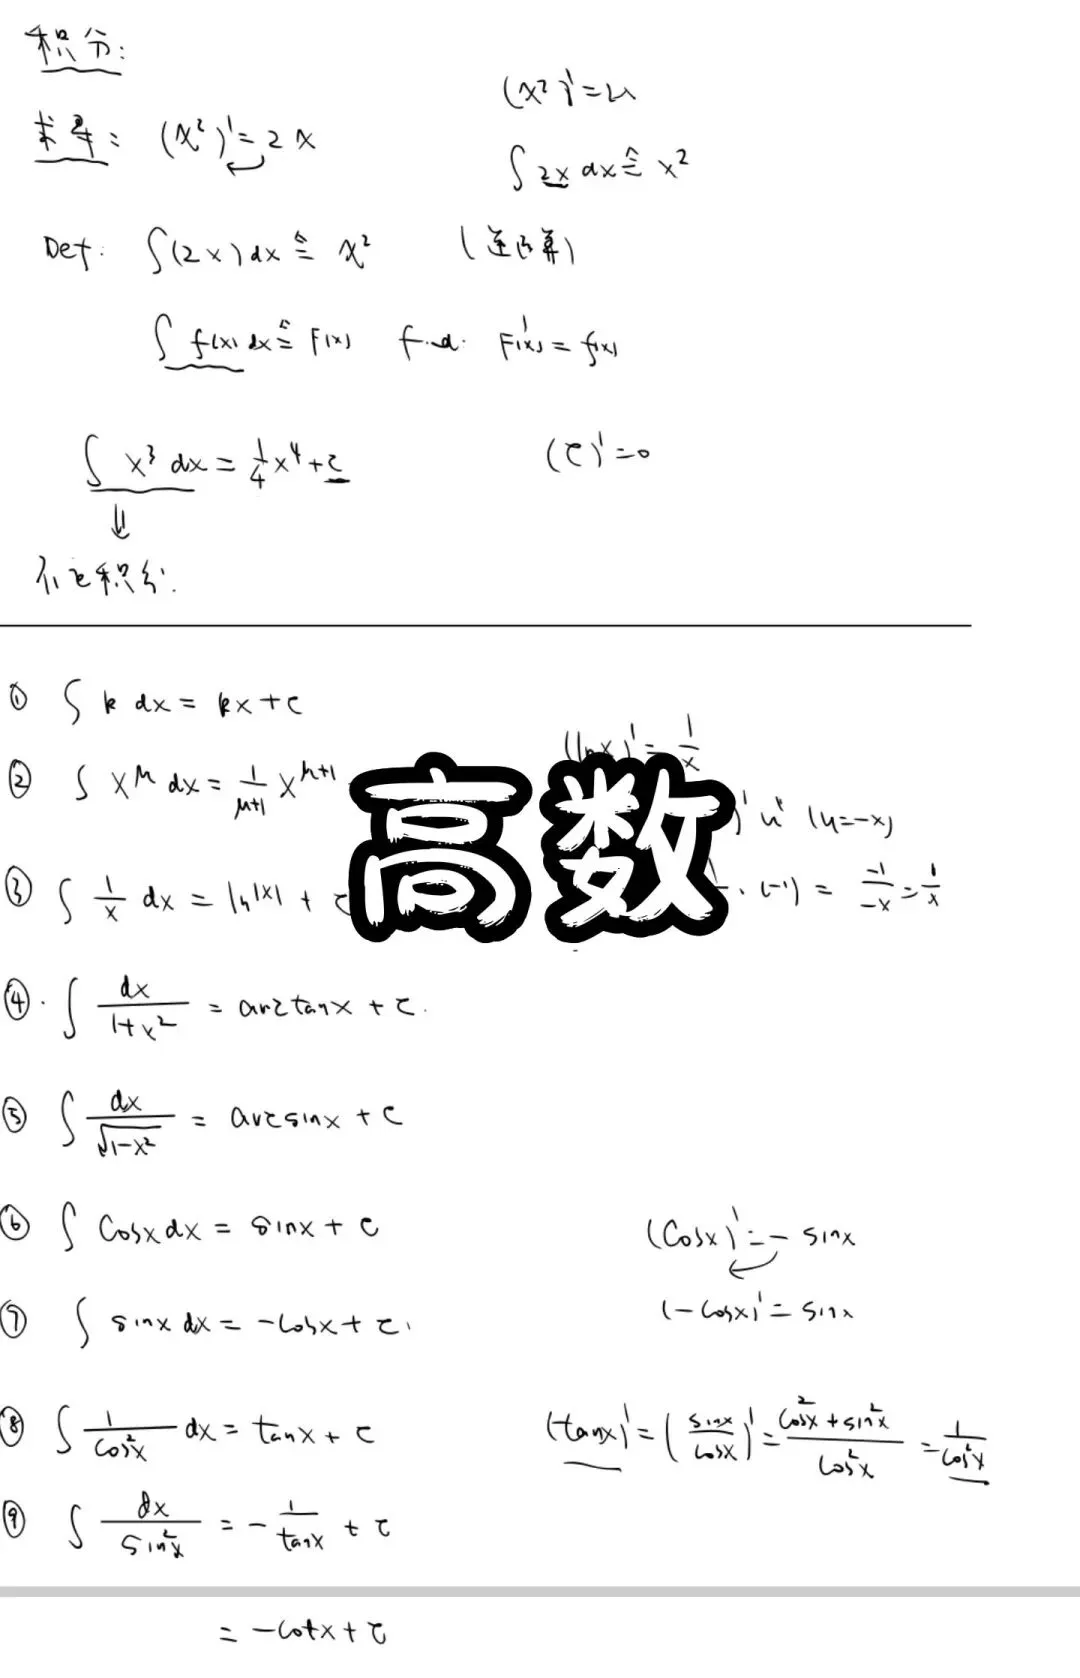 积分:
(x²)' = 2x
求导: (x²)' = 2x
∫ 2x dx ≙ x²
Def: ∫(2x)dx ≙ x² (逆运算)
∫ f(x) dx ≙ F(x) f.d. F'(x) = f(x)
∫ x³ dx = 1/4 x⁴ + C (C)' = 0
⇓
不定积分.
① ∫ k dx = kx + C
(ln x)' = 1/x
② ∫ x^μ dx = 1/(μ+1) x^(μ+1)
高数
)' u' (u=-x)
③ ∫ 1/x dx = ln|x| + C
· (-1) = -1/-x = 1/x
④. ∫ dx/(1+x²) = arctanx + C.
⑤ ∫ dx/√(1-x²) = arcsinx + C
⑥ ∫ cosx dx = sinx + C
(cosx)' = - sinx
⑦ ∫ sinx dx = -cosx + C.
(-cosx)' = sinx
⑧ ∫ 1/cos²x dx = tanx + C
(tanx)' = (sinx/cosx)' = (cos²x + sin²x)/cos²x = 1/cos²x
⑨ ∫ dx/sin²x = - 1/tanx + C
= -cotx + C